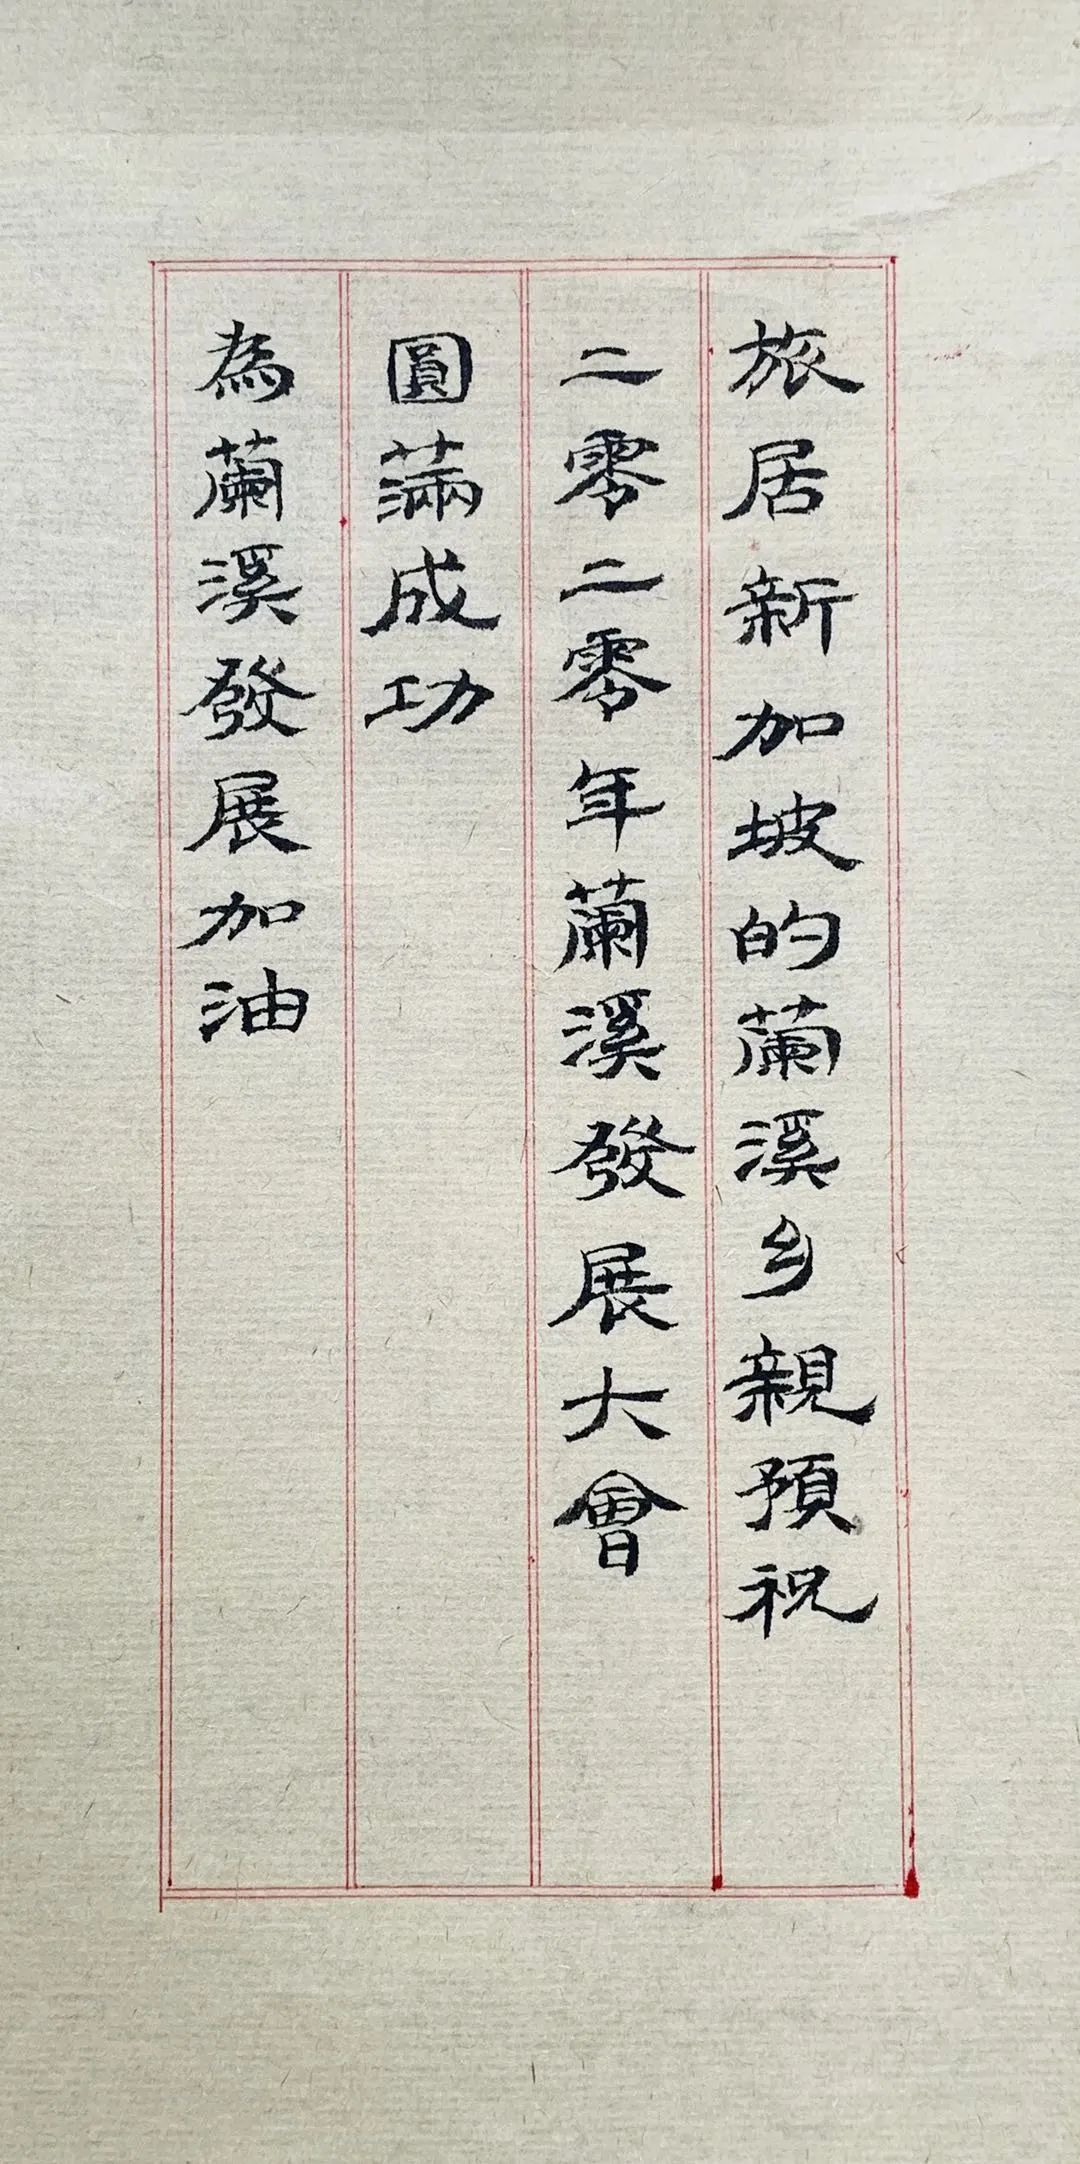 旅居新加坡的蘭溪乡親預祝
二零二零年蘭溪發展大會
圓滿成功
為蘭溪發展加油